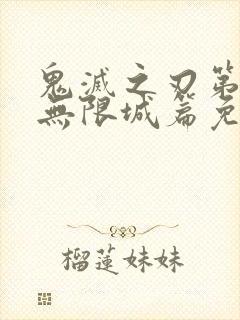 鬼滅之刃第
無限城篇免
榴蓮妹妹